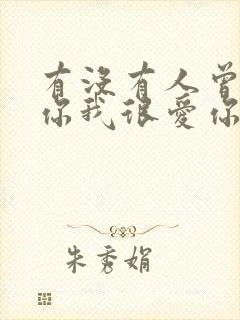 有没有人曾
你我很爱你
朱秀娟